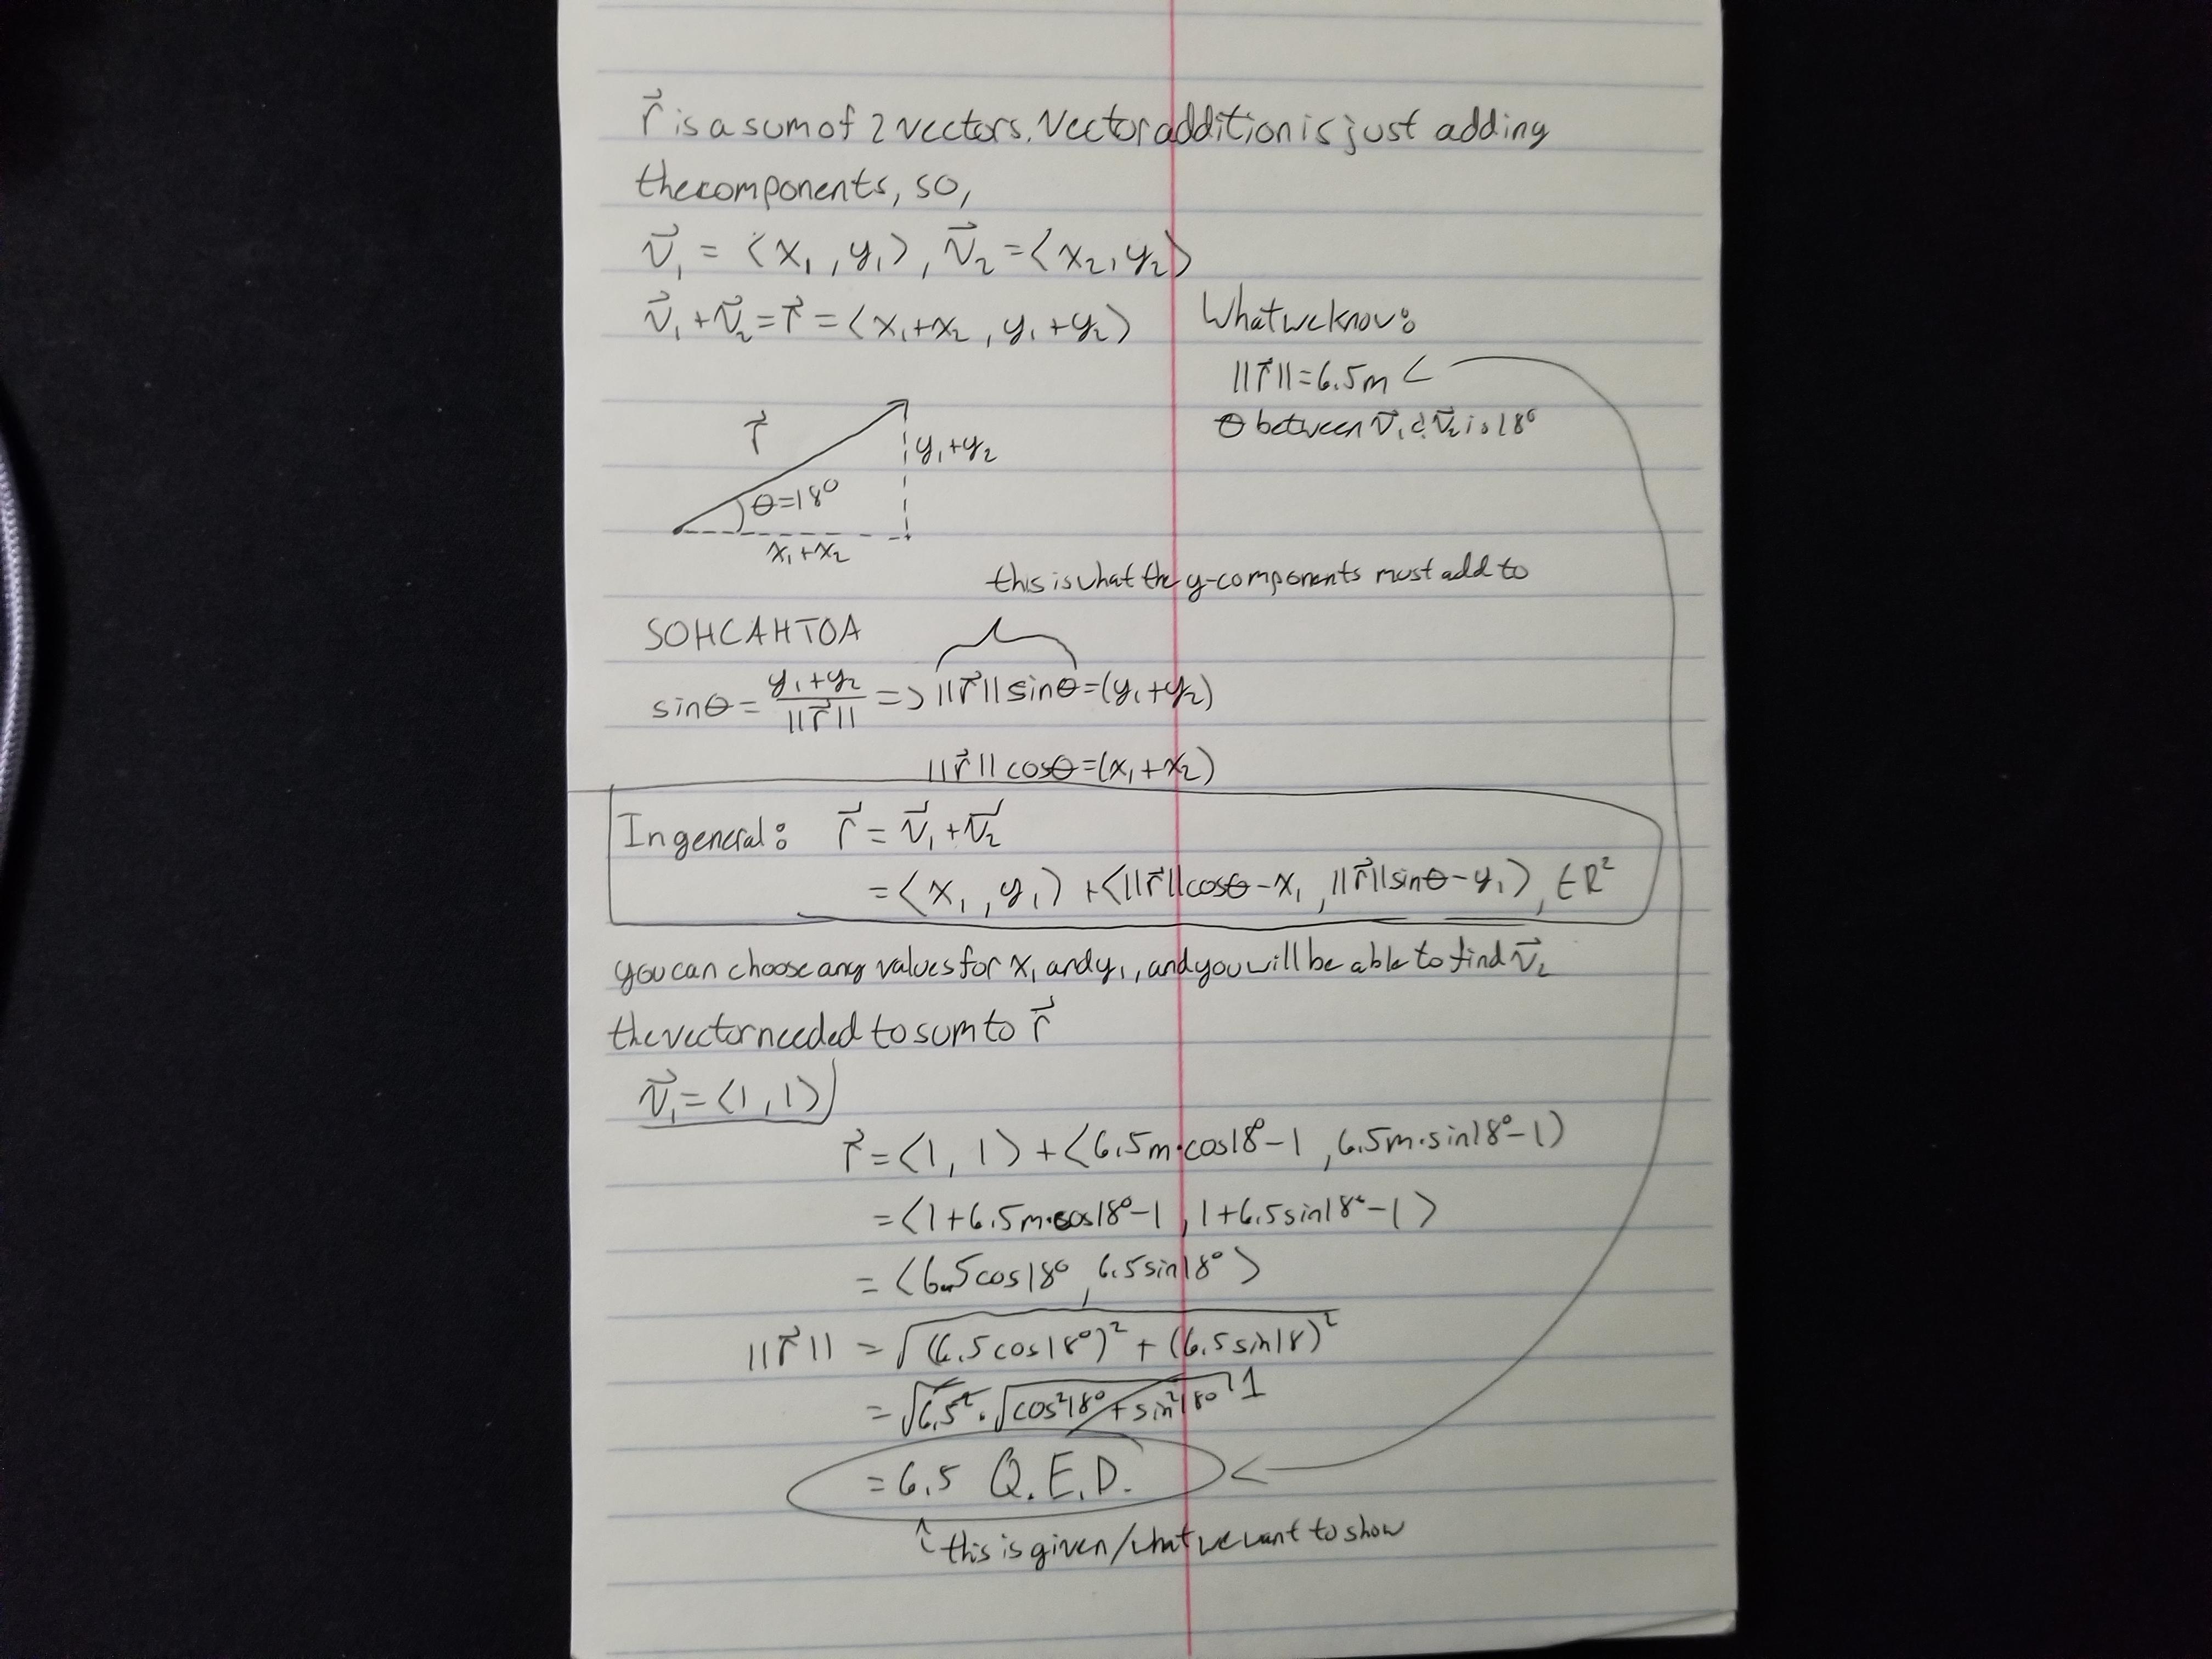 r⃗ is a sum of 2 vectors. Vector addition is just adding
the components, so,
v⃗₁ = ⟨x₁, y₁⟩, v⃗₂ = ⟨x₂, y₂⟩
v⃗₁ + v⃗₂ = r⃗ = ⟨x₁+x₂, y₁+y₂⟩
What we know:
||r⃗|| = 6.5m <
θ between v⃗₁ & v⃗₂ is 18°
r⃗
y₁+y₂
θ=18°
x₁+x₂
this is what the y-components must add to
SOHCAHTOA
sinθ = (y₁+y₂)/||r⃗|| => ||r⃗|| sinθ = (y₁+y₂)
||r⃗|| cosθ = (x₁+x₂)
In general: r⃗ = v⃗₁ + v⃗₂
= ⟨x₁, y₁⟩ + ⟨||r⃗||cosθ - x₁, ||r⃗||sinθ - y₁⟩, ∈ R²
you can choose any values for x₁ and y₁, and you will be able to find v⃗₂
the vector needed to sum to r⃗
v⃗₁ = ⟨1, 1⟩
r⃗ = ⟨1, 1⟩ + ⟨6.5m·cos18° - 1, 6.5m·sin18° - 1⟩
= ⟨1+6.5m·cos18° - 1, 1+6.5sin18° - 1⟩
= ⟨6.5cos18°, 6.5sin18°⟩
||r⃗|| = √((6.5cos18°)² + (6.5sin18)²)
= √6.5² · √(cos²18° + sin²18°) 1
= 6.5 Q.E.D. <
↑ this is given/what we want to show